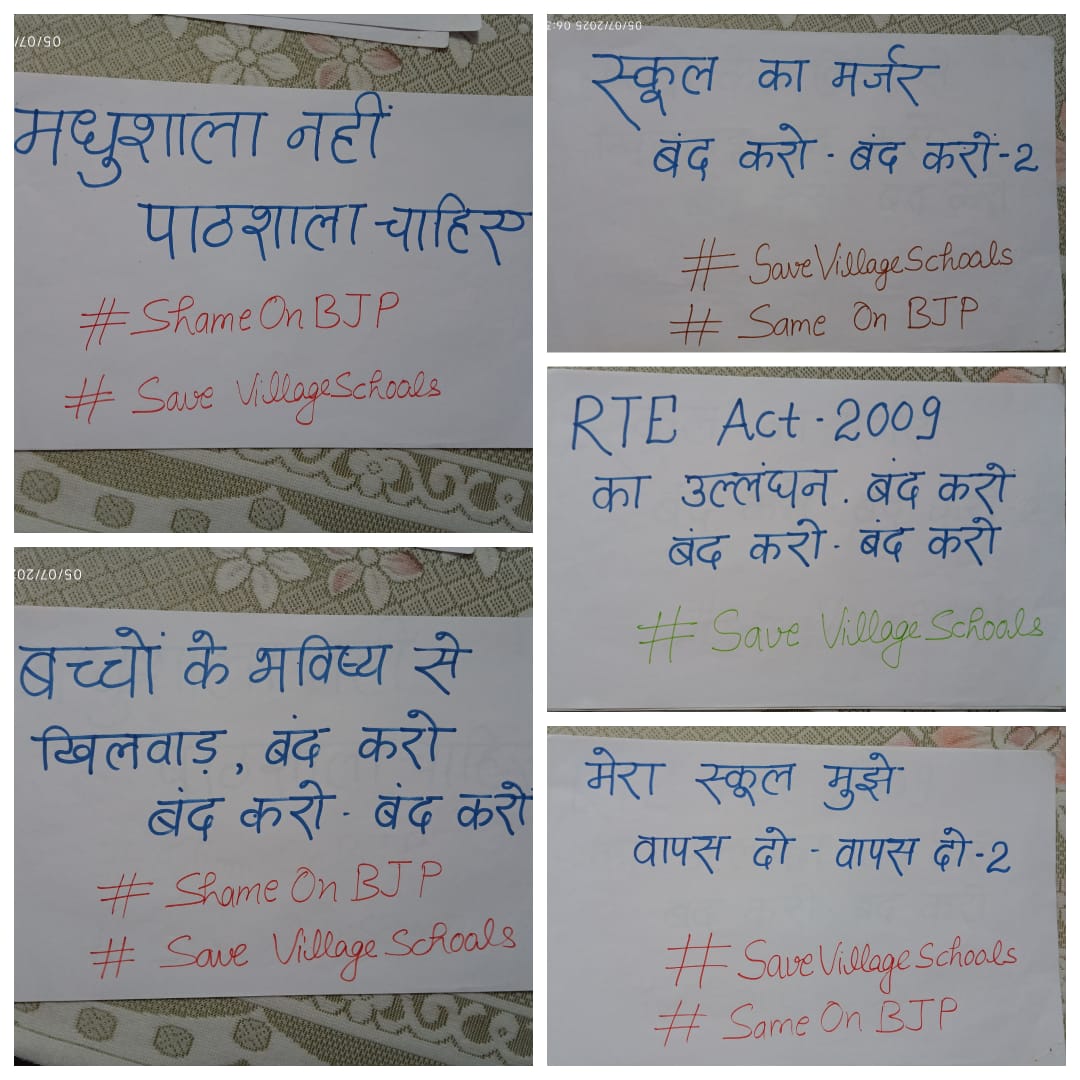 05/07/20
मधुशाला नहीं
पाठशाला चाहिए
# Shame On BJP
# Save Village Schools
05/07/202
बच्चों के भविष्य से
खिलवाड़, बंद करो
बंद करो - बंद करो
# Shame On BJP
# Save Village Schools
05/07/2025 06:3
स्कूल का मर्जर
बंद करो - बंद करों-2
# Save Village Schools
# Same On BJP
RTE Act - 2009
का उल्लंघन. बंद करो
बंद करो - बंद करो
# Save Village Schools
मेरा स्कूल मुझे
वापस दो - वापस दो-2
# Save Village Schools
# Same On BJP